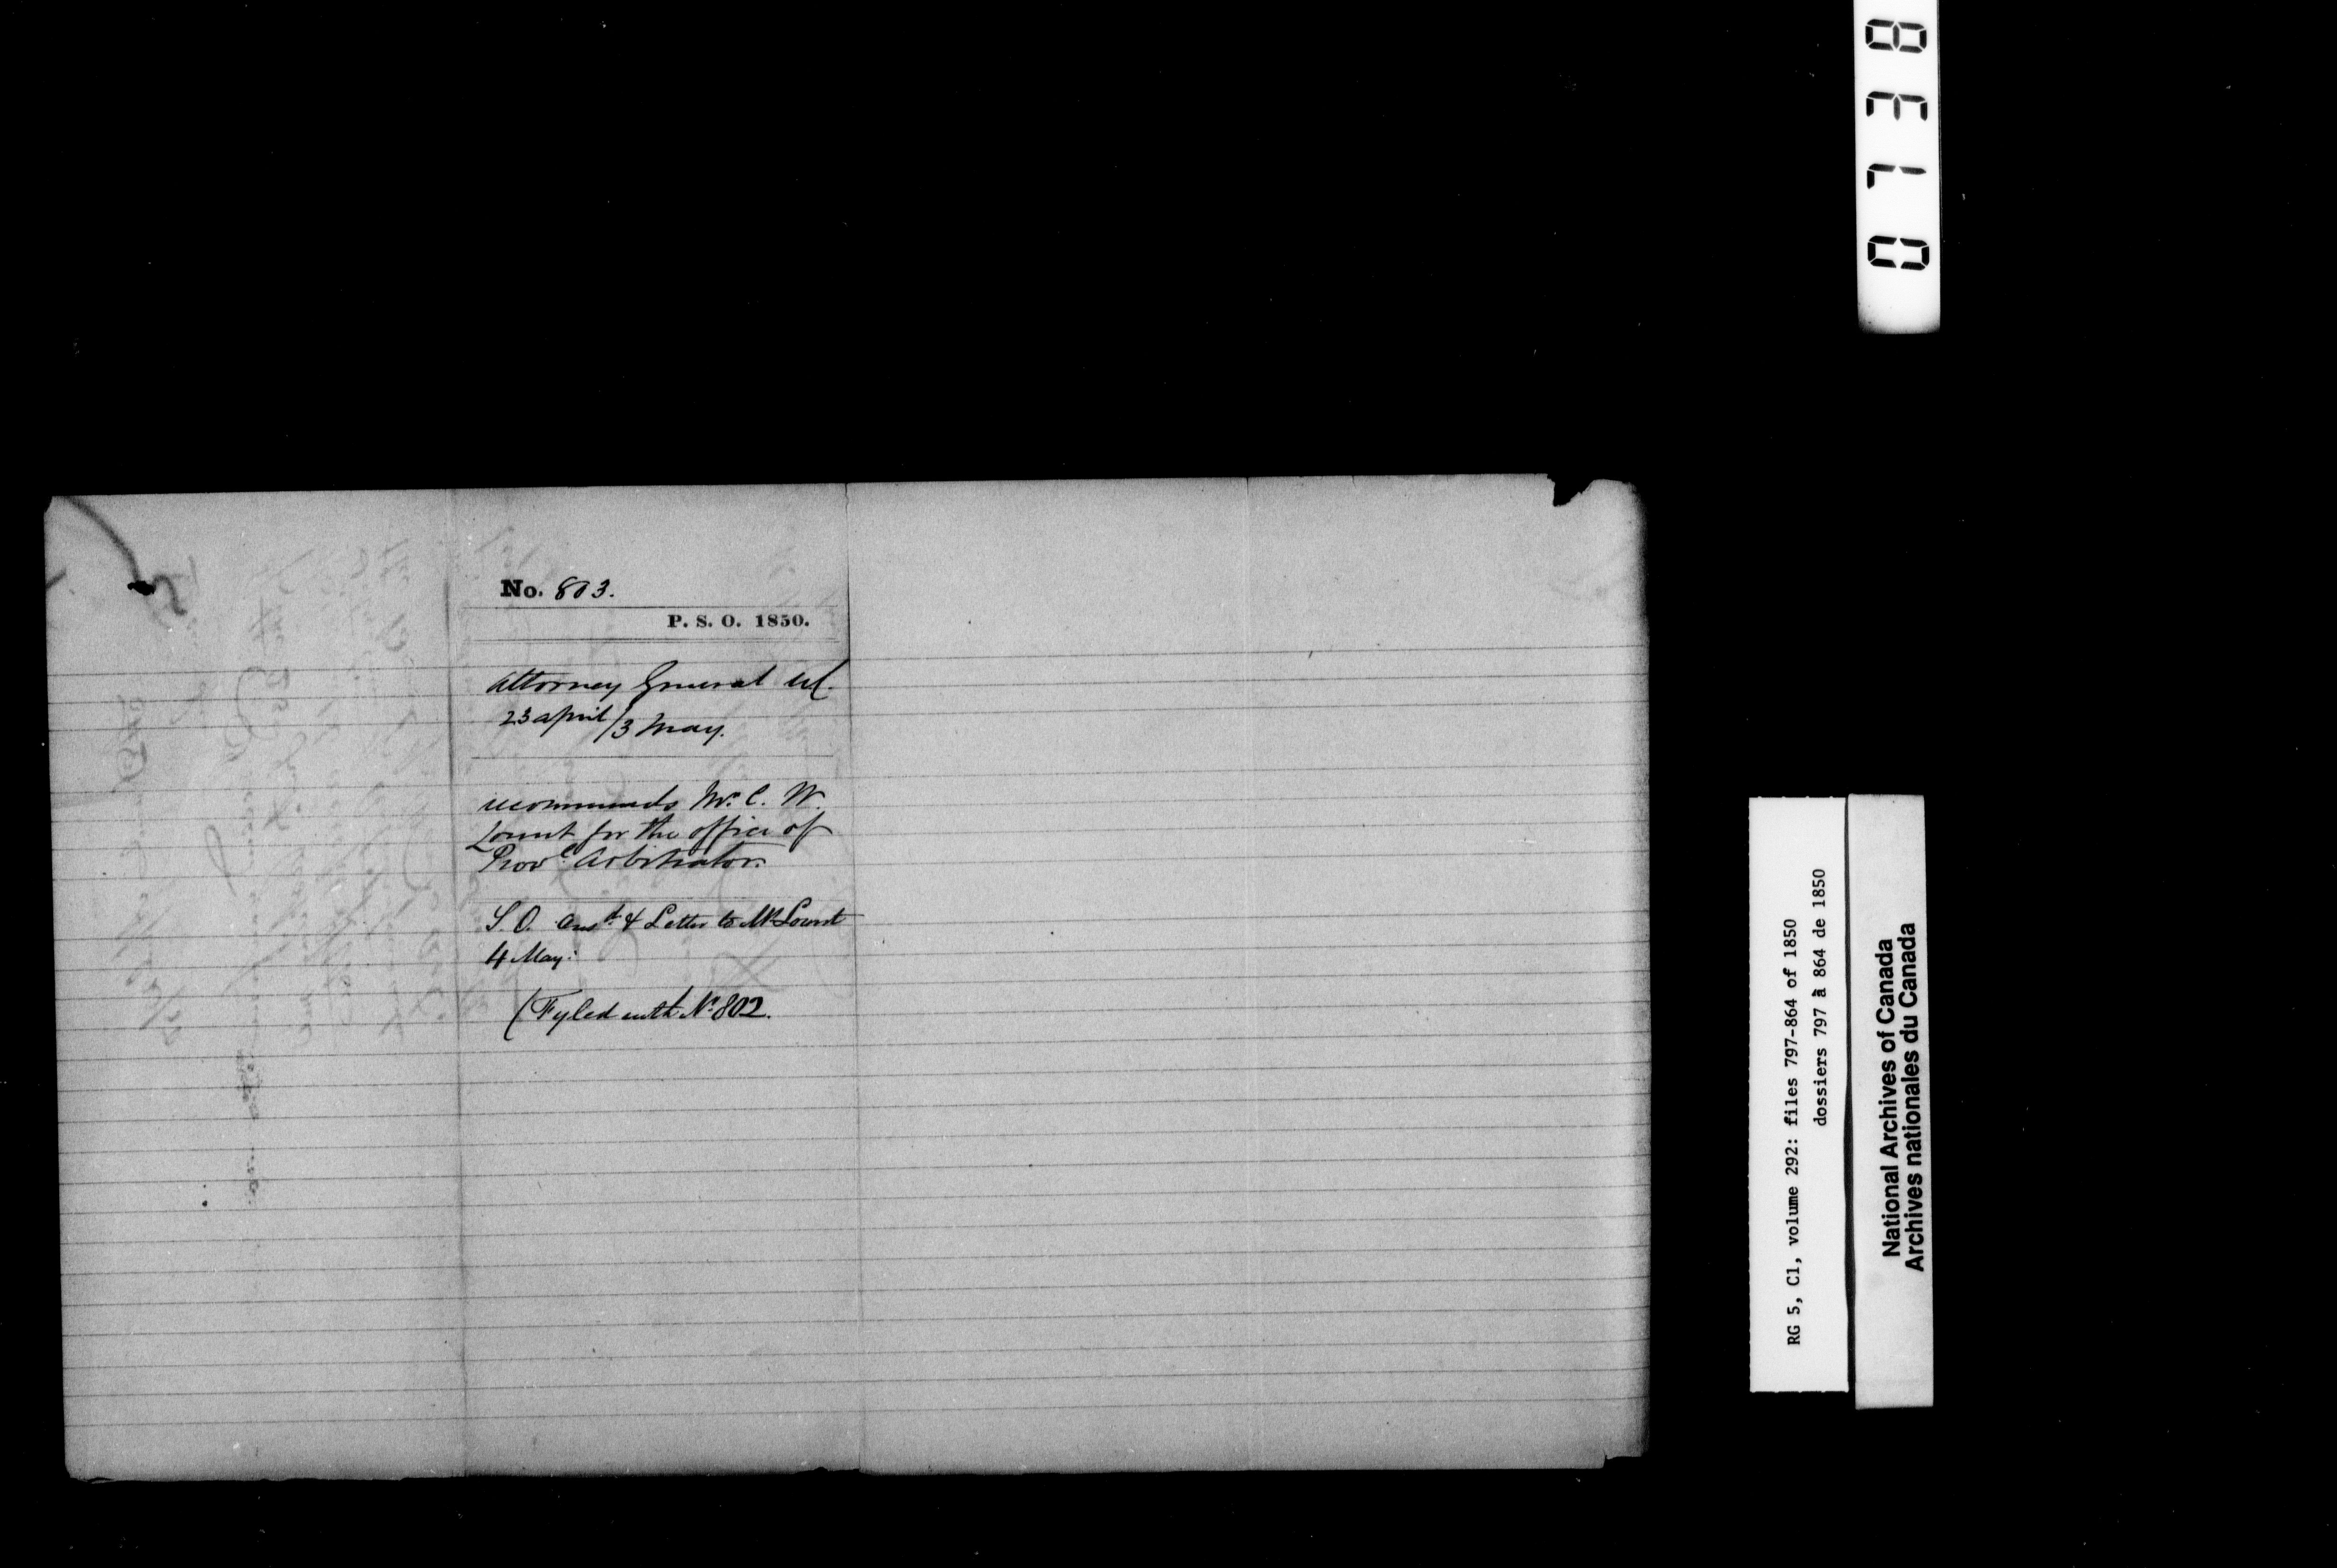 No. 803.
P. S. O. 1850.
Attorney General
23 april/3 May.
recommends Mr. C. W.
Lount for the office of
Provl. Arbitrator.
S. O. Ansd. & Letter to Mr Lount
4 May.
(Fyled with No. 802.
0738
RG 5, C1, volume 292: files 797-864 of 1850
dossiers 797 à 864 de 1850
National Archives of Canada
Archives nationales du Canada